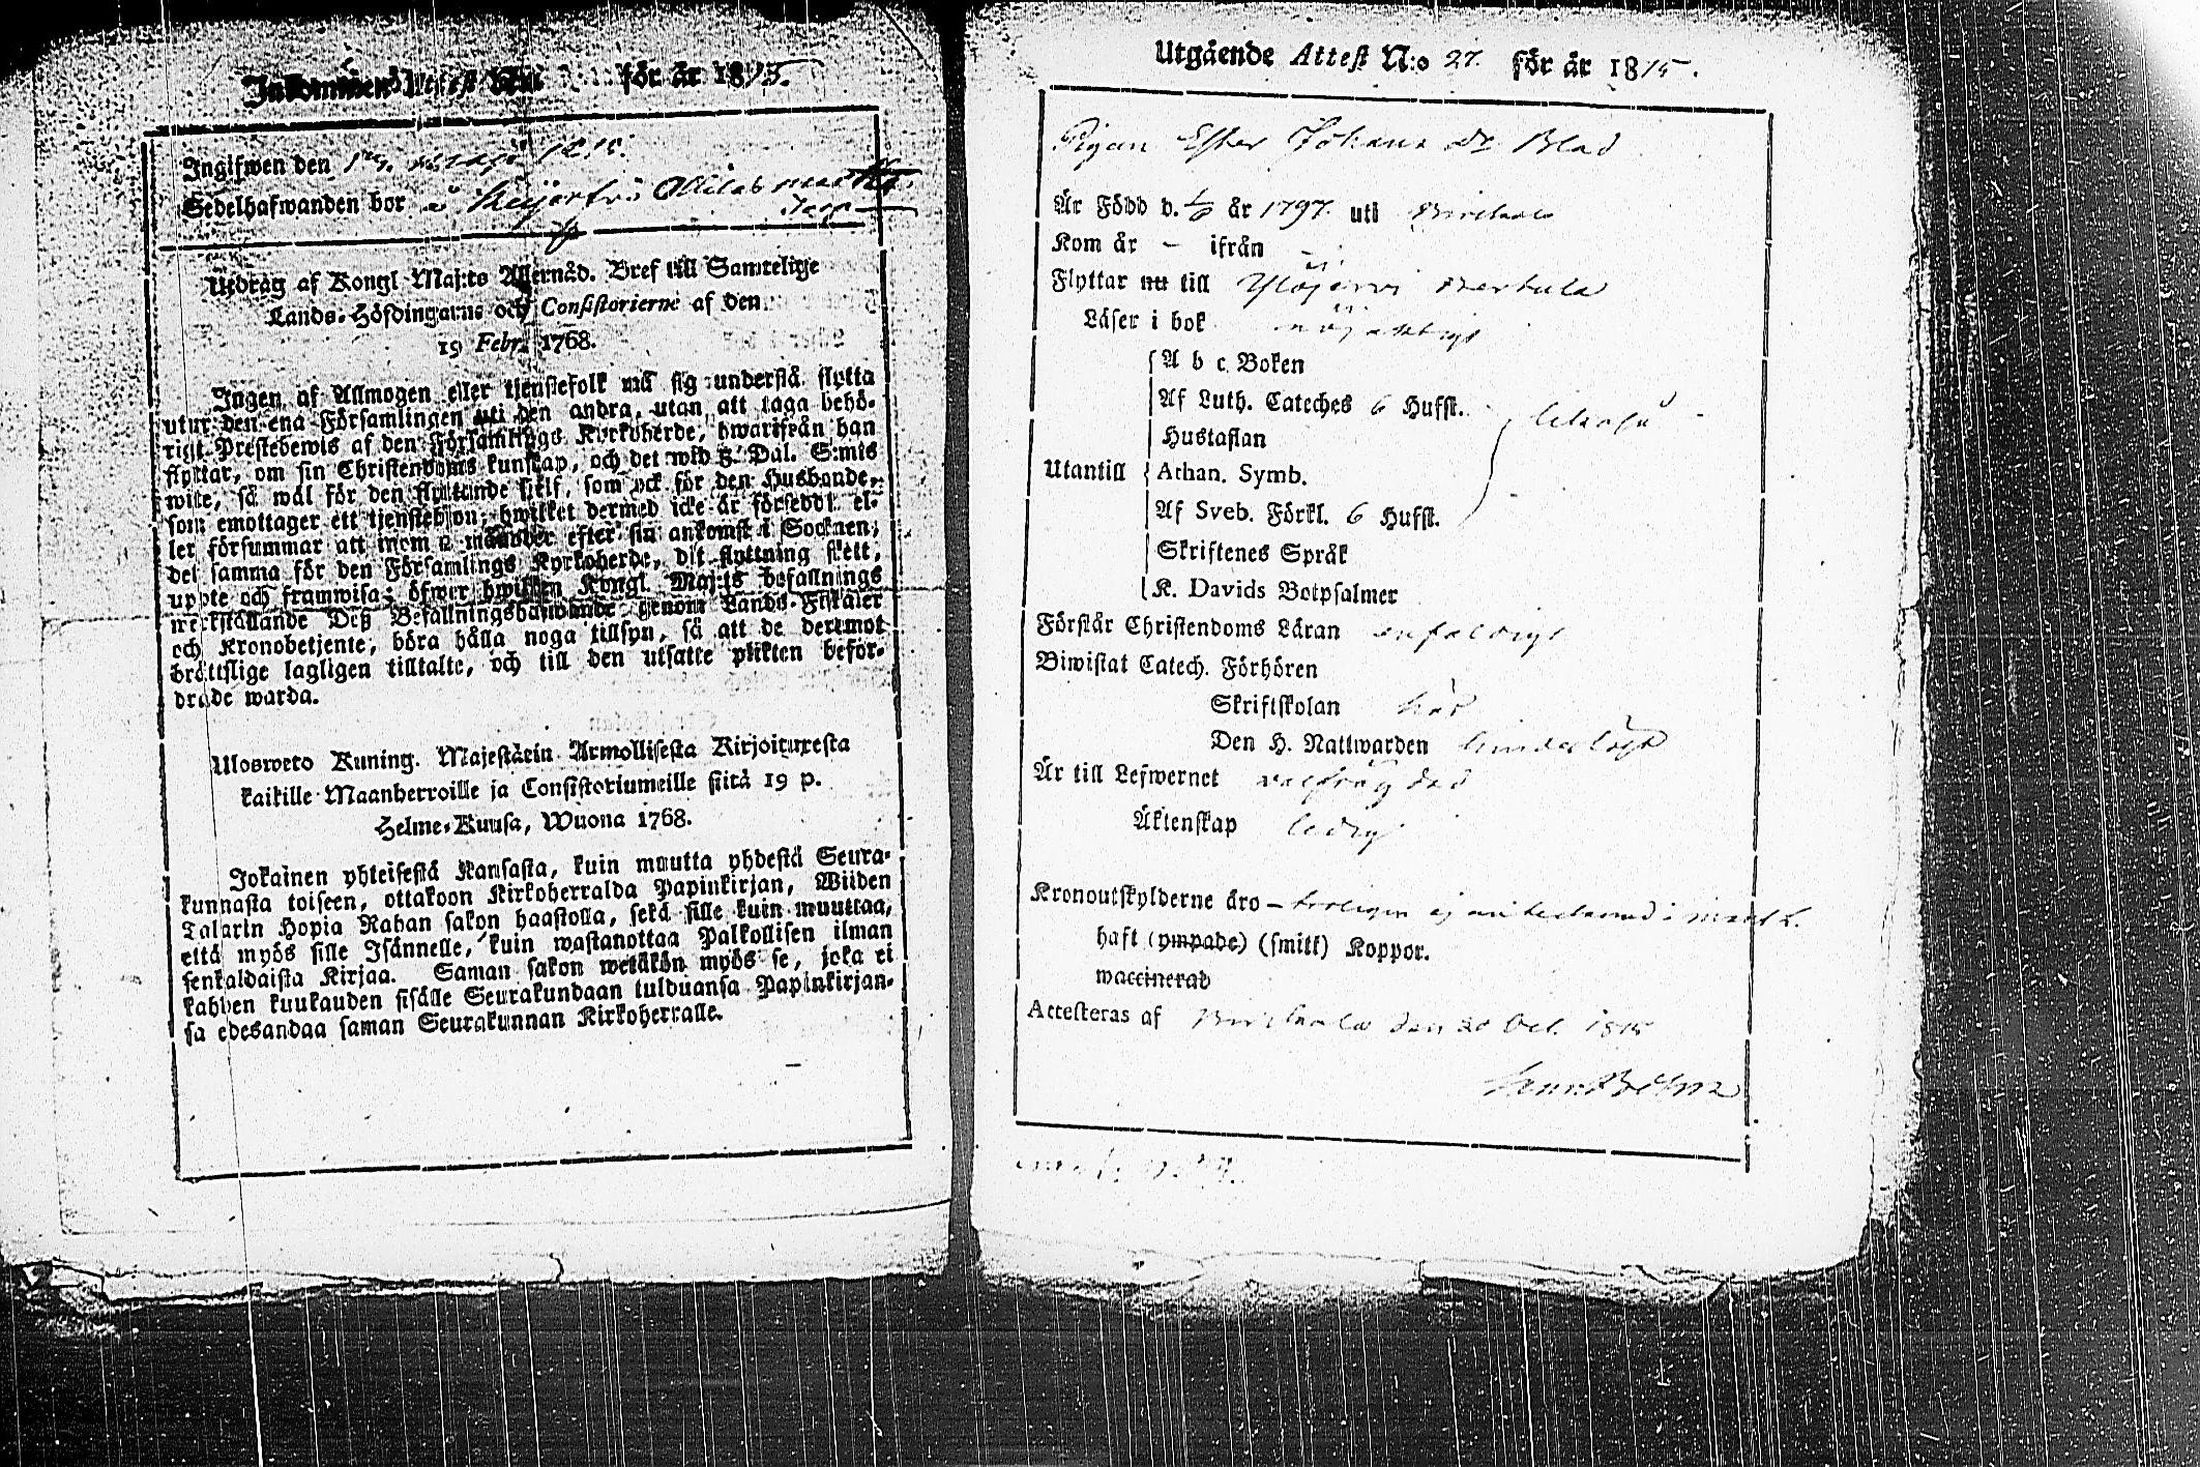 Inkommen Attest N:o för år 1815.
Ingifwen den 1815.
Sedelhafwanden bor å
Utdrag af Kongl Maj:ts Allernåd. Bref till Samtelige
Lands-Höfdingarne och Consistorierne af den
19 Febr. 1768.
Ingen af Allmogen eller tjenstefolk må sig understå flytta
utur den ena Församlingen uti den andra, utan att taga behö-
rigt Prestebewis af den Församlings Kyrkoherde, hwarifrån han
flyttar, om sin Christendoms kunskap, och det wid 5 Dal. S:mts
wite, så wäl för den flyttande sjelf, som ock för den Husbonde,
som emottager ett tjenstehjon, hwilket dermed icke är försedd; el-
ler försummar att inom 2 månader efter sin ankomst i Socknen,
det samma för den Församlings Kyrkoherde, dit flyttning skett,
uppte och framwisa; öfwer hwilken Kongl. Maj:ts befallnings
werkställande Deß Befallningshafwande genom Lands-Fiskaler
och Kronobetjente, böra hålla noga tillsyn, så att de deremot
bråttslige lagligen tilltalte, och till den utsatte plikten befor-
drade warda.
Ulosweto Kuning. Majestätin Armollisesta Kirjoituxesta
kaikille Maanherroille ja Consistoriumeille siitä 19 p.
Helme-Kuusa, Wuona 1768.
Jokainen yhteisestä Kansasta, kuin muutta yhdestä Seura-
kunnasta toiseen, ottakoon Kirkoherralda Papinkirjan, Wiiden
Talarin Hopia Rahan sakon haastolla, sekä sille kuin muuttaa,
että myös sille Isännelle, kuin wastanottaa Palkollisen ilman
senkaldaista Kirjaa. Saman sakon wetäkön myös se, joka ei
kahden kuukauden sisälle Seurakundaan tulduansa Papinkirjan-
sa edesandaa saman Seurakunnan Kirkoherralle.
Utgående Attest N:o 27. för år 1815.
Pigan Esther Johans Dr Blad
Är Född d. år 1797. uti Birckala
Kom år - ifrån -
Flyttar nu till Ylöjerwi Mertula
Läser i bok nöjaktigt
A b c Boken
Af Luth. Cateches 6 Hufst.
Hustaflan
Utantill Athan. Symb.
Af Sveb. Förkl. 6 Hufst.
Skriftenes Språk
K. Davids Botpsalmer
Förstår Christendoms Läran enfaldigt
Biwistat Catech. Förhören
Skriftskolan här
Den H. Nattwarden
Är till Lefwernet välfrägdad
Äktenskap ledig
Kronoutskylderne äro
haft (ympade) (smitt) Koppor.
waccinerad
Attesteras af Birckala den 20 Oct. 1815